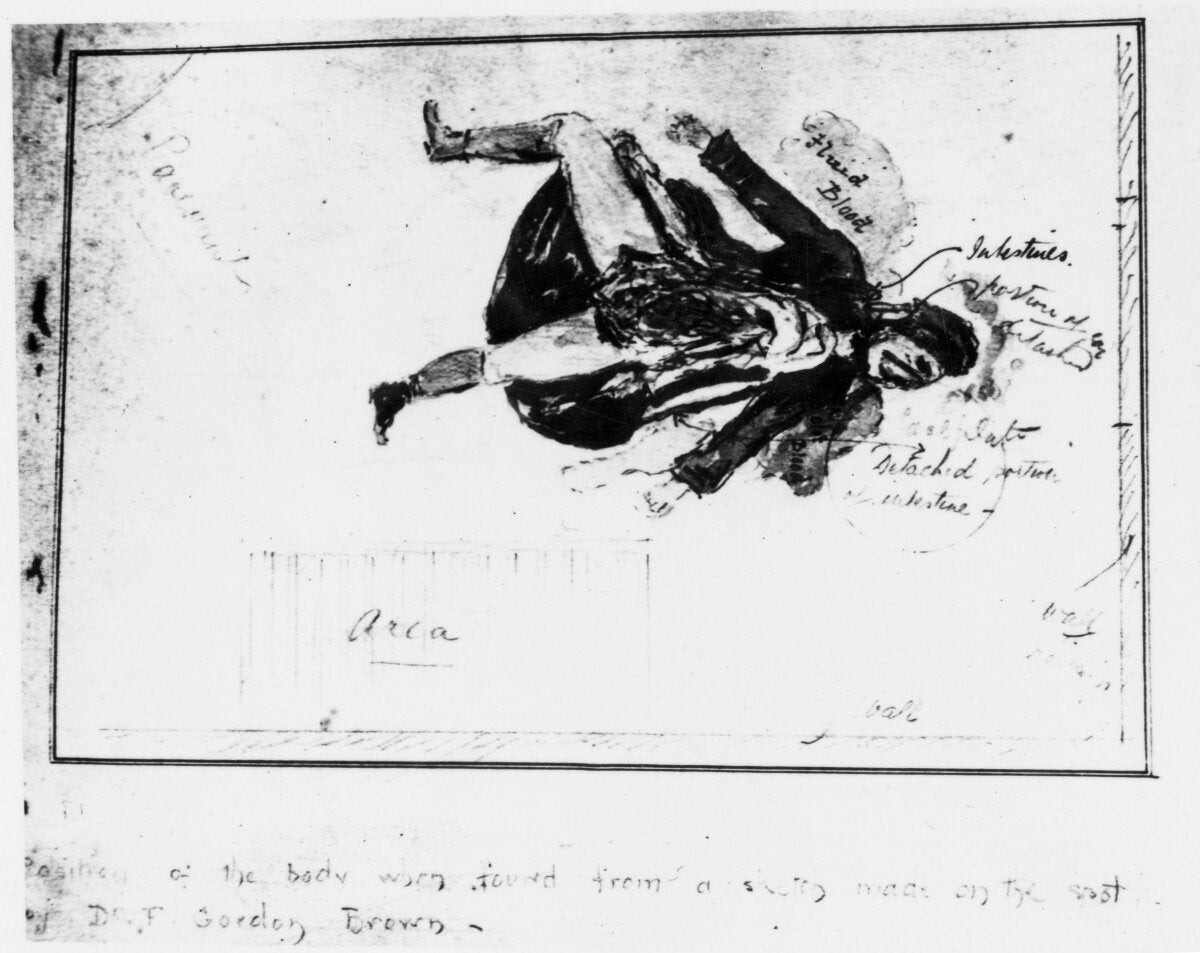 Pavement
Fluid
Blood
Intestines.
portion of ear
detached
Blood
Detached portion
of intestine -
Area
Wall
Wall
Position of the body when found from a sketch made on the spot
by Dr. F Gordon Brown -